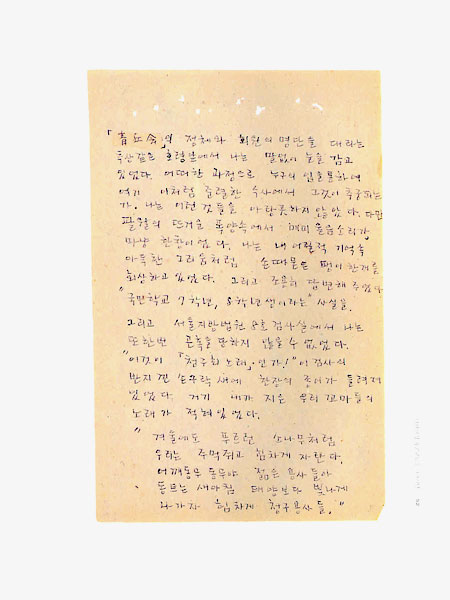 「靑丘会」의 정체와 회원의 명단을 대라는
추상같은 호령 앞에서 나는 말없이 눈을 감고
있었다. 어떠한 과정으로 누구의 입을 통하여
여기 이처럼 준열한 추궁
가. 나는 이런 것들을 아랑곳하지 않았다. 다만
팔월의 뜨거운 폭양 속에서 매미 울음소리가
마냥 한창이었다. 나는 내 어릴적 기억 속
아득한 그리움처럼 손때묻은 팽이 한개를
회상하고 있었다. 그리고 조용히 답변해 주었다.
"국민학교 7학년, 8학년생이라는" 사실을.
그리고 서울지방법원 8호 검사실에서 나는
또한번 곤혹을 당하지 않을수 없었다.
"이것이 「청구회 노래」인가!" 이 검사의
반지낀 손가락 새에 한장의 종이가 들려져
있었다. 거기 내가 지은 우리 꼬마들의
노래가 적혀있었다.
"겨울에도 푸르른 소나무처럼
우리는 주먹쥐고 힘차게 자란다.
어깨동무 동무야 젊은 용사들아
동트는 새아침 태양보다 빛나게
나가자 힘차게 청구용사들."